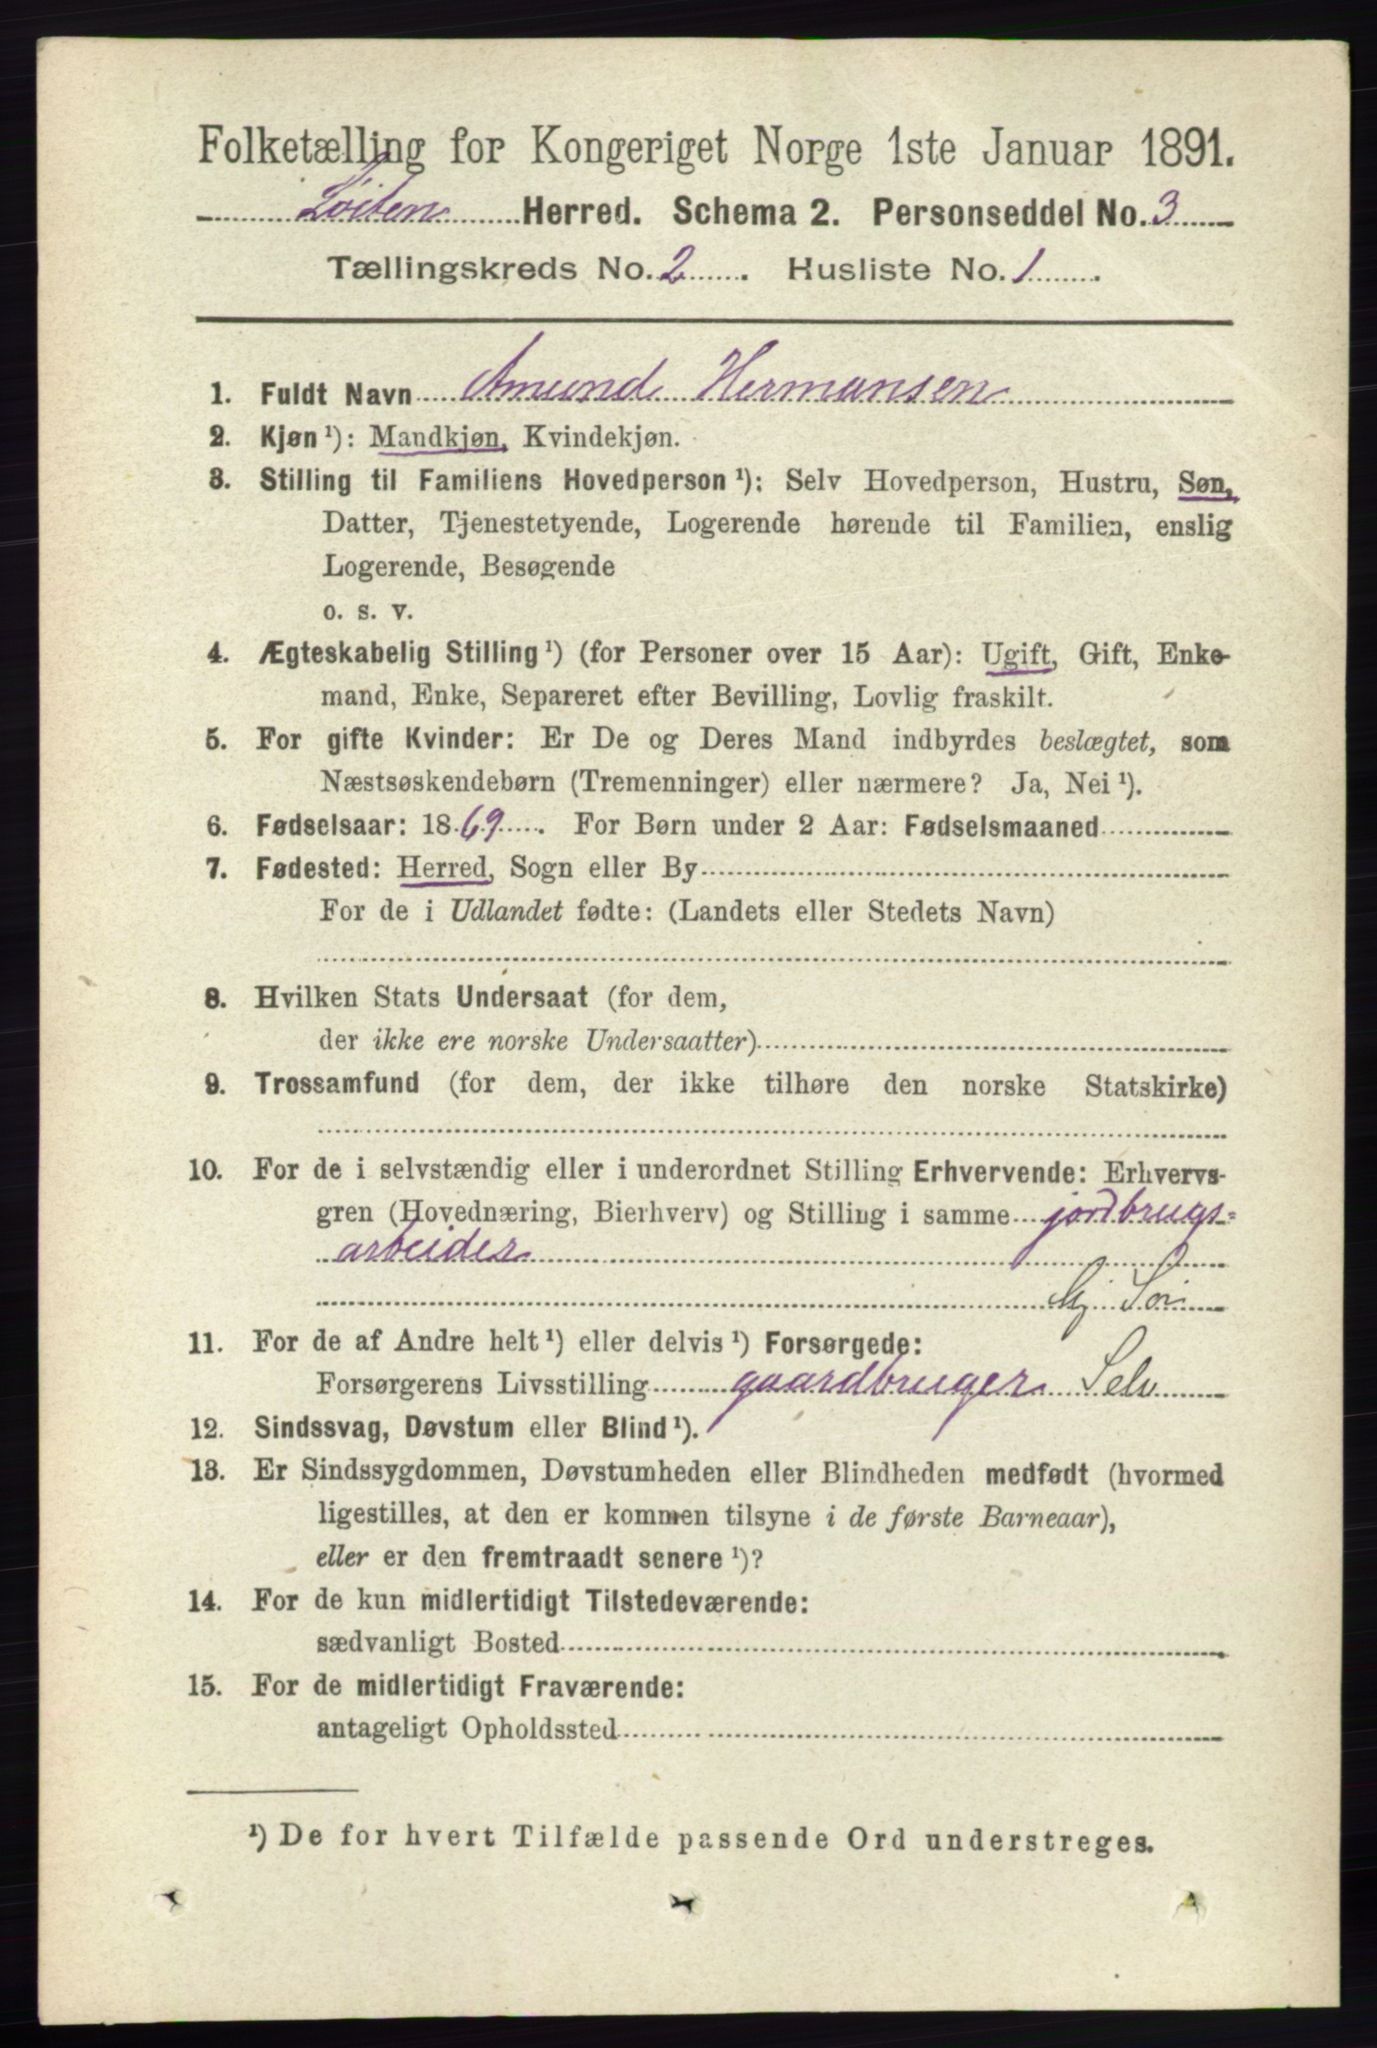 Folketælling for Kongeriget Norge 1ste Januar 1891.
Løiten Herred. Schema 2. Personseddel No. 3
Tællingskreds No. 2. Husliste No. 1.
1. Fuldt Navn Amund Hermansen
2. Kjøn¹): Mandkjøn, Kvindekjøn.
3. Stilling til Familiens Hovedperson¹): Selv Hovedperson, Hustru, Søn,
Datter, Tjenestetyende, Logerende hørende til Familien, enslig
Logerende, Besøgende
o. s. v.
4. Ægteskabelig Stilling¹) (for Personer over 15 Aar): Ugift, Gift, Enke-
mand, Enke, Separeret efter Bevilling, Lovlig fraskilt.
5. For gifte Kvinder: Er De og Deres Mand indbyrdes beslægtet, som
Næstsøskendebørn (Tremenninger) eller nærmere? Ja, Nei¹).
6. Fødselsaar: 1869. For Børn under 2 Aar: Fødselsmaaned
7. Fødested: Herred, Sogn eller By
For de i Udlandet fødte: (Landets eller Stedets Navn)
8. Hvilken Stats Undersaat (for dem,
der ikke ere norske Undersaatter)
9. Trossamfund (for dem, der ikke tilhøre den norske Statskirke)
10. For de i selvstændig eller i underordnet Stilling Erhvervende: Erhvervs-
gren (Hovednæring, Bierhverv) og Stilling i samme jordbrugs=
arbeider
11. For de af Andre helt¹) eller delvis¹) Forsørgede:
Forsørgerens Livsstilling gaardbruger Selv
12. Sindssvag, Døvstum eller Blind¹).
13. Er Sindssygdommen, Døvstumheden eller Blindheden medfødt (hvormed
ligestilles, at den er kommen tilsyne i de første Barneaar),
eller er den fremtraadt senere¹)?
14. For de kun midlertidigt Tilstedeværende:
sædvanligt Bosted
15. For de midlertidigt Fraværende:
antageligt Opholdssted
¹) De for hvert Tilfælde passende Ord understreges.